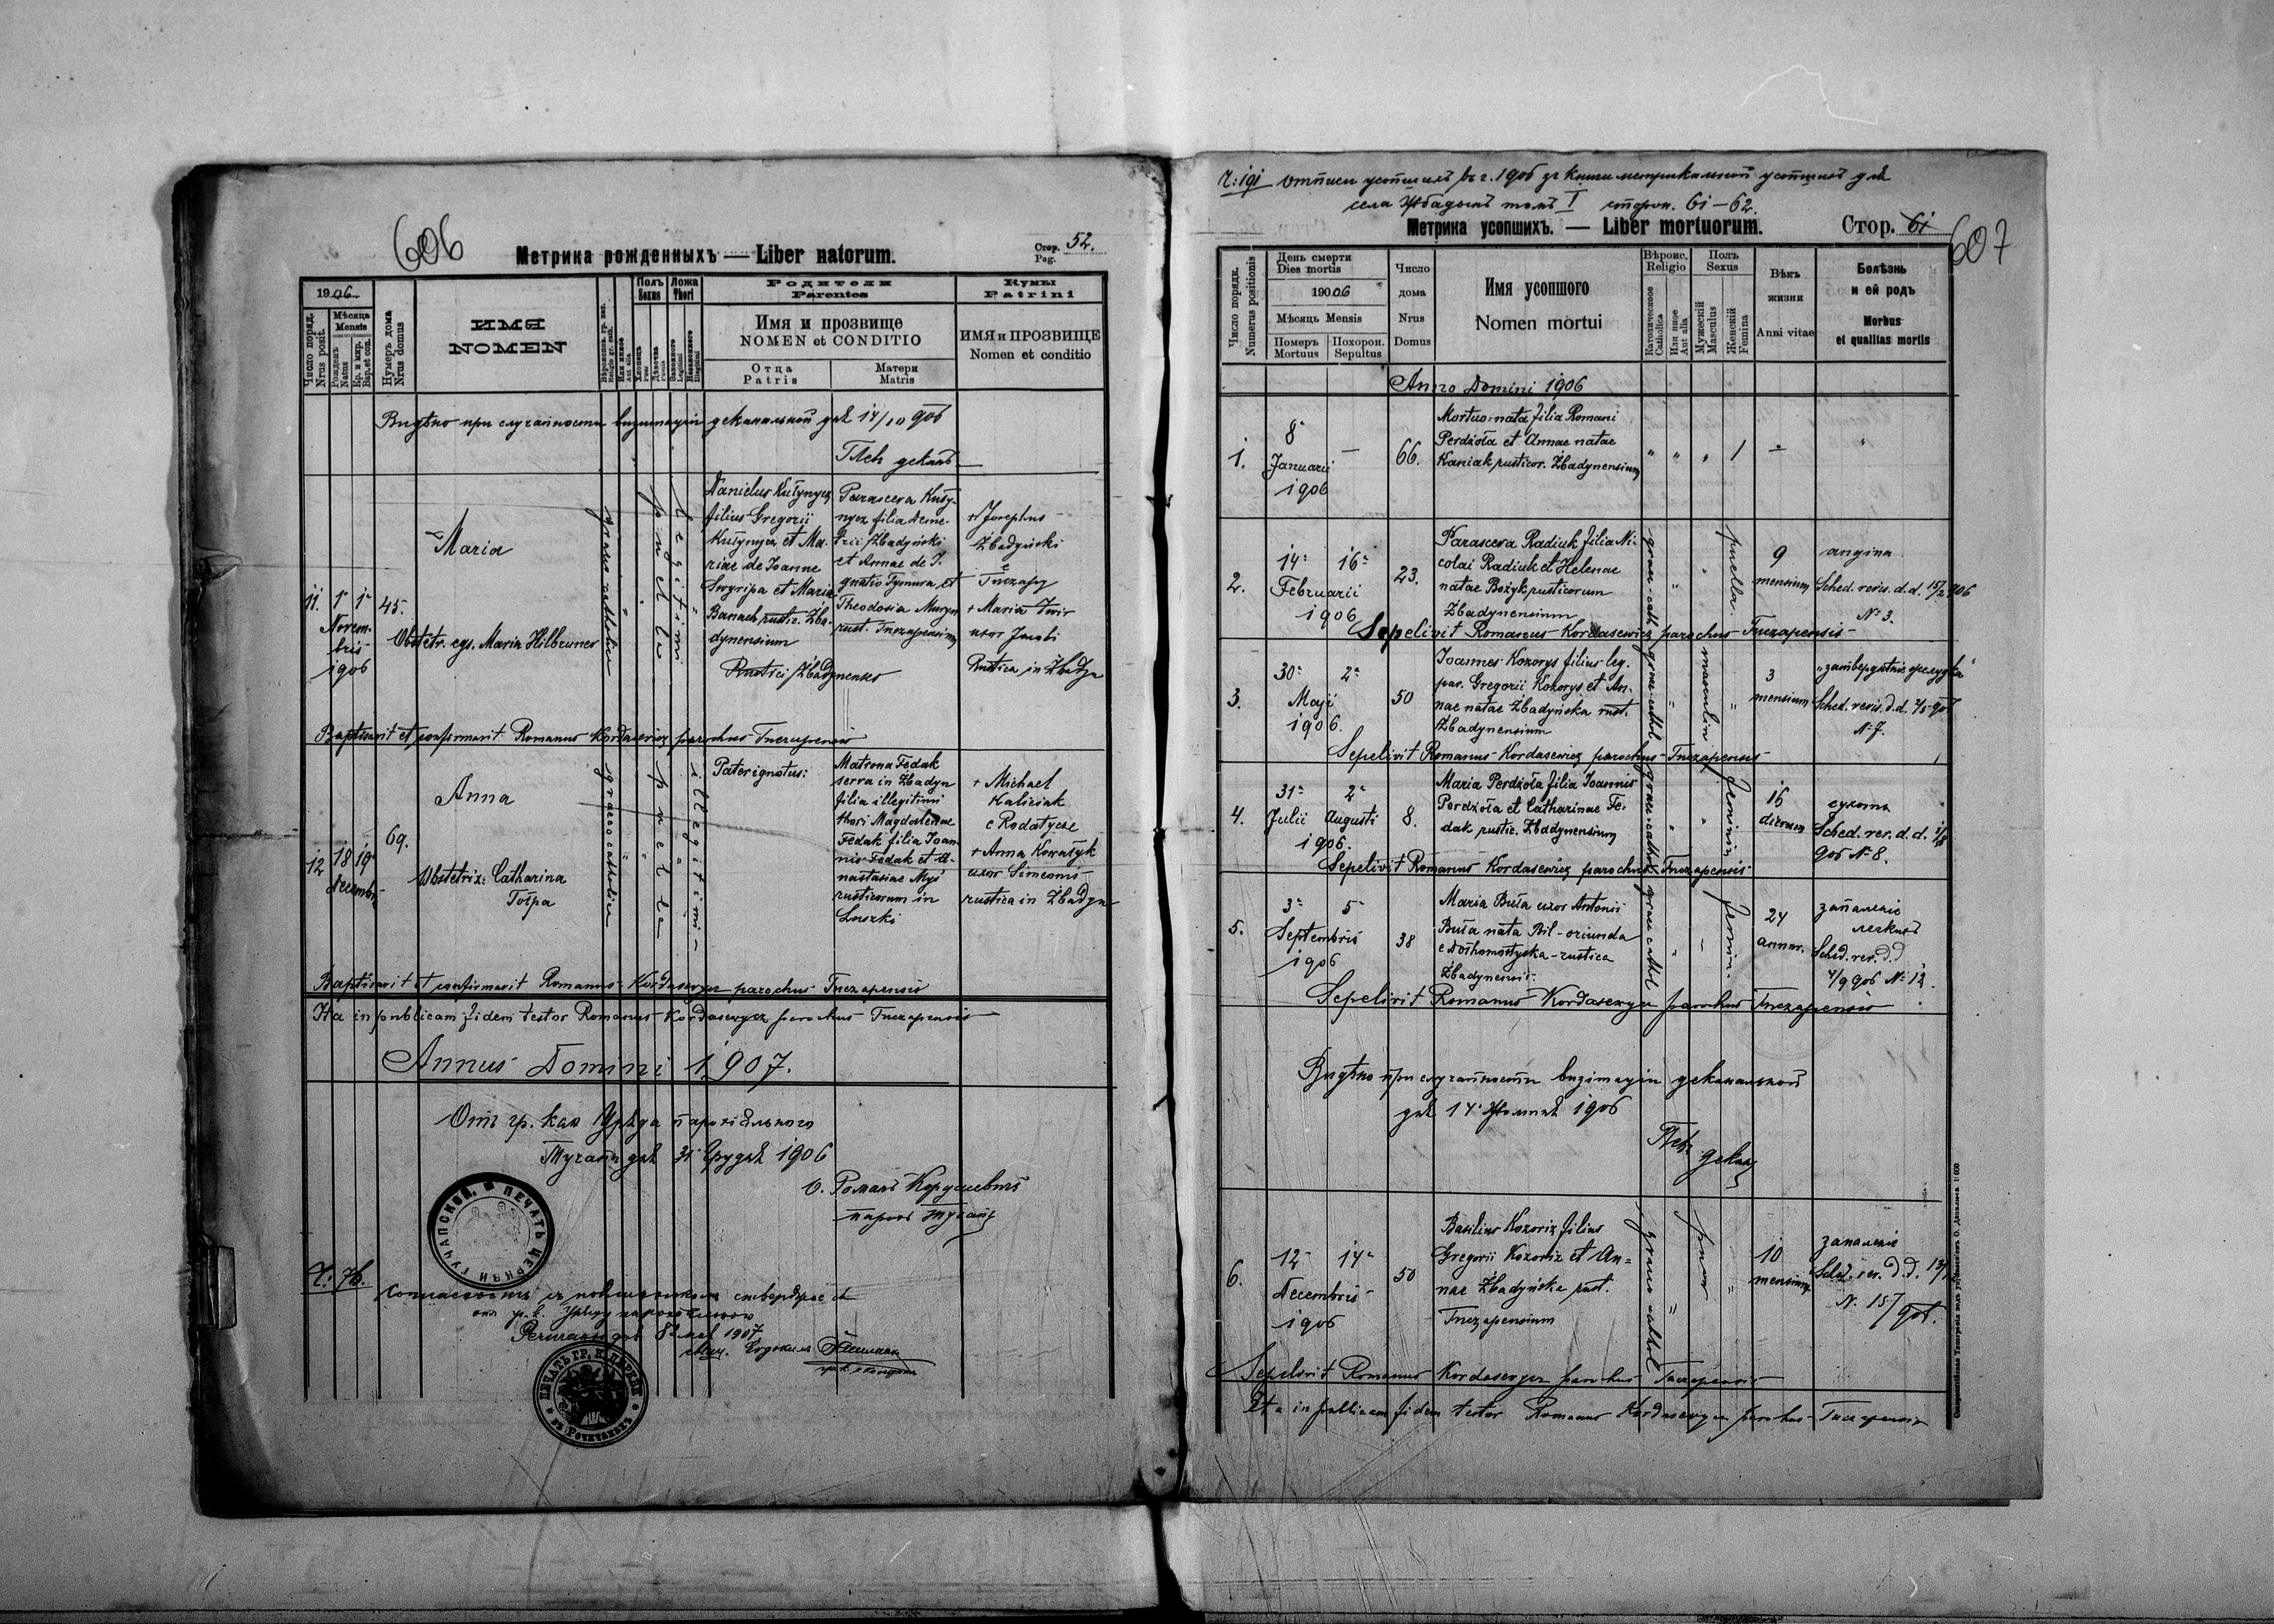 606
Метрика рожденныхъ — Liber natorum.
Стор. 52.
Pag.
1906
Число поряд.
Nrus posit.
Мѣсяца
Mensis
Рожденъ
Natus
Кр. и мир.
Bap. et con.
Нумеръ дома
Nrus domus
ИМЯ
NOMEN
Полъ
Sexus
Ложа
Thori
Родители
Parentes
Имя и прозвище
NOMEN et CONDITIO
Отца
Patris
Матери
Matris
Кумы
Patrini
ИМЯ и ПРОЗВИЩЕ
Nomen et conditio
Видѣно при случайности визитаціи деканальной дня 14/ 906
деканъ
11.
1° 1°
Novem-
bris
1906
45.
Maria
Obstetr. egz. Maria Hilbruner
graeco catholica
puella
legitimi
Danielus Kułynycz
filius Gregorii
Kułynycz et Ma-
riae de Joanne
et Maria
Banach rustic. Zba-
dynensium
Parasceva Kuły-
nycz filia Deme-
trii Zbadyński
et Annae de I-
gnatio Tymura et
Theodosia
rust. Tuczapensium
Rustici Zbadynenses
+ Josephus
Zbadyński
e Tuczapy
+ Maria
uxor Jacobi
Rustica in Zbadyn
Baptisavit et confirmavit Romanus Kordasewicz parochus Tuczapensis
12
18 19
Decembris
69.
Anna
Obstetrix: Catharina
Tołpa
graeco catholica
puella
illegitimi
Pater ignotus:
Matrona Fedak
serva in Zbadyn
filia illegitimi
thori Magdalenae
Fedak filia Joan-
nis Fedak et A-
nastasiae Myś
rusticorum in
+ Michael
Kaliciak
e Rodatycze
+ Anna Kowałyk
uxor Simeonis
rustica in Zbadyn
Baptisavit et confirmavit Romanus Kordasewycz parochus Tuczapensis
Ita in publicam fidem testor Romanus Kordasewycz parochus Tuczapensis
Annus Domini 1907.
Отъ гр. кат Уряда парохіяльного
Тучапы дня 31 Грудня 1906
о. Романъ Кордасевичъ
парохъ Тучапъ
ПЕЧАТЬ ЦЕРКВИ ТУЧАПСКОИ.
Ч: 76.
1907
ПЕЧАТЬ ГР. К. ЦЕРКВИ
Ч: 191 Отписи усопшихъ въ г. 1906 зъ книги метрикальной усопшихъ для
села Жбадынъ томъ I сторон. 61–62.
Метрика усопшихъ. — Liber mortuorum.
Стор. 61
607
Число порядк.
Numerus positionis
День смерти
Dies mortis
1906
Мѣсяць Mensis
Померъ
Mortuus
Похорон.
Sepultus
Число
дома
Nrus
Domus
Имя усопшого
Nomen mortui
Вѣроис.
Religio
Католическое
Catholica
Или иное
Aut alia
Полъ
Sexus
Мужескій
Masculus
Женскій
Femina
Вѣкъ
жизни
Anni vitae
Болѣзнь
и ей родъ
Morbus
et qualitas mortis
Anno Domini 1906
1.
8°
Januarii
1906
—
66.
Mortuo-nata filia Romani
Perdżoła et Annae natae
Kaniak rusticor. Zbadynensium
2.
14° 16°
Februarii
1906
23.
Parasceva Radiuk filia Ni-
colai Radiuk et Helenae
natae Bożyk rusticorum
Zbadynensium
graec-cath.
puella
9
mensium
angina
Sched. revis. d.d. 15/2 906
№ 3.
Sepelivit Romanus Kordasewicz parochus Tuczapensis
3.
30° 2°
Maji
1906.
50
Joannes Kozorys filius leg.
par. Gregorii Kozorys et An-
nae natae Zbadyńska rust.
Zbadynensium
graec-cathol.
masculin
3
mensium
Sched. revis. d.d.
№ 7.
Sepelivit Romanus Kordasewicz parochus Tuczapensis
4.
31° 2°
Julii Augusti
1906.
8.
Maria Perdżoła filia Joannis
Perdżoła et Catharinae Fe-
dak rustic. Zbadynensium
graec-cathol.
feminin
16
dierum
сухота
Sched. rev. d.d. 1/8
906 № 8.
Sepelivit Romanus Kordasewicz parochus Tuczapensis
5.
3° 5°
Septembris
1906
38
Maria Buła uxor Antonii
Buła nata Bil - oriunda
e Dołhomostyska - rustica
Zbadynensis
graec cathol
femin.
24
annor.
запаленіе
легкихъ
Sched. rev. d.d
4/9 906 № 12.
Sepelivit Romanus Kordasewycz parochus Tuczapensis
Видѣно при случайности визитаціи деканальной
дня 14 Жолтня 1906
декан
6.
12° 14°
Decembris
1906
50
Basilius Kozoriz filius
Gregorii Kozoriz et An=
nae Zbadyńska rust.
Tuczapensium
graeco cathol
puer
10
mensium
запаленіе
Sched. rev. d.d. 13/
№ 15/906.
Sepelivit Romanus Kordasewycz parochus Tuczapensis
Ita in publicam fidem testor Romanus Kordasewycz parochus Tuczapensis